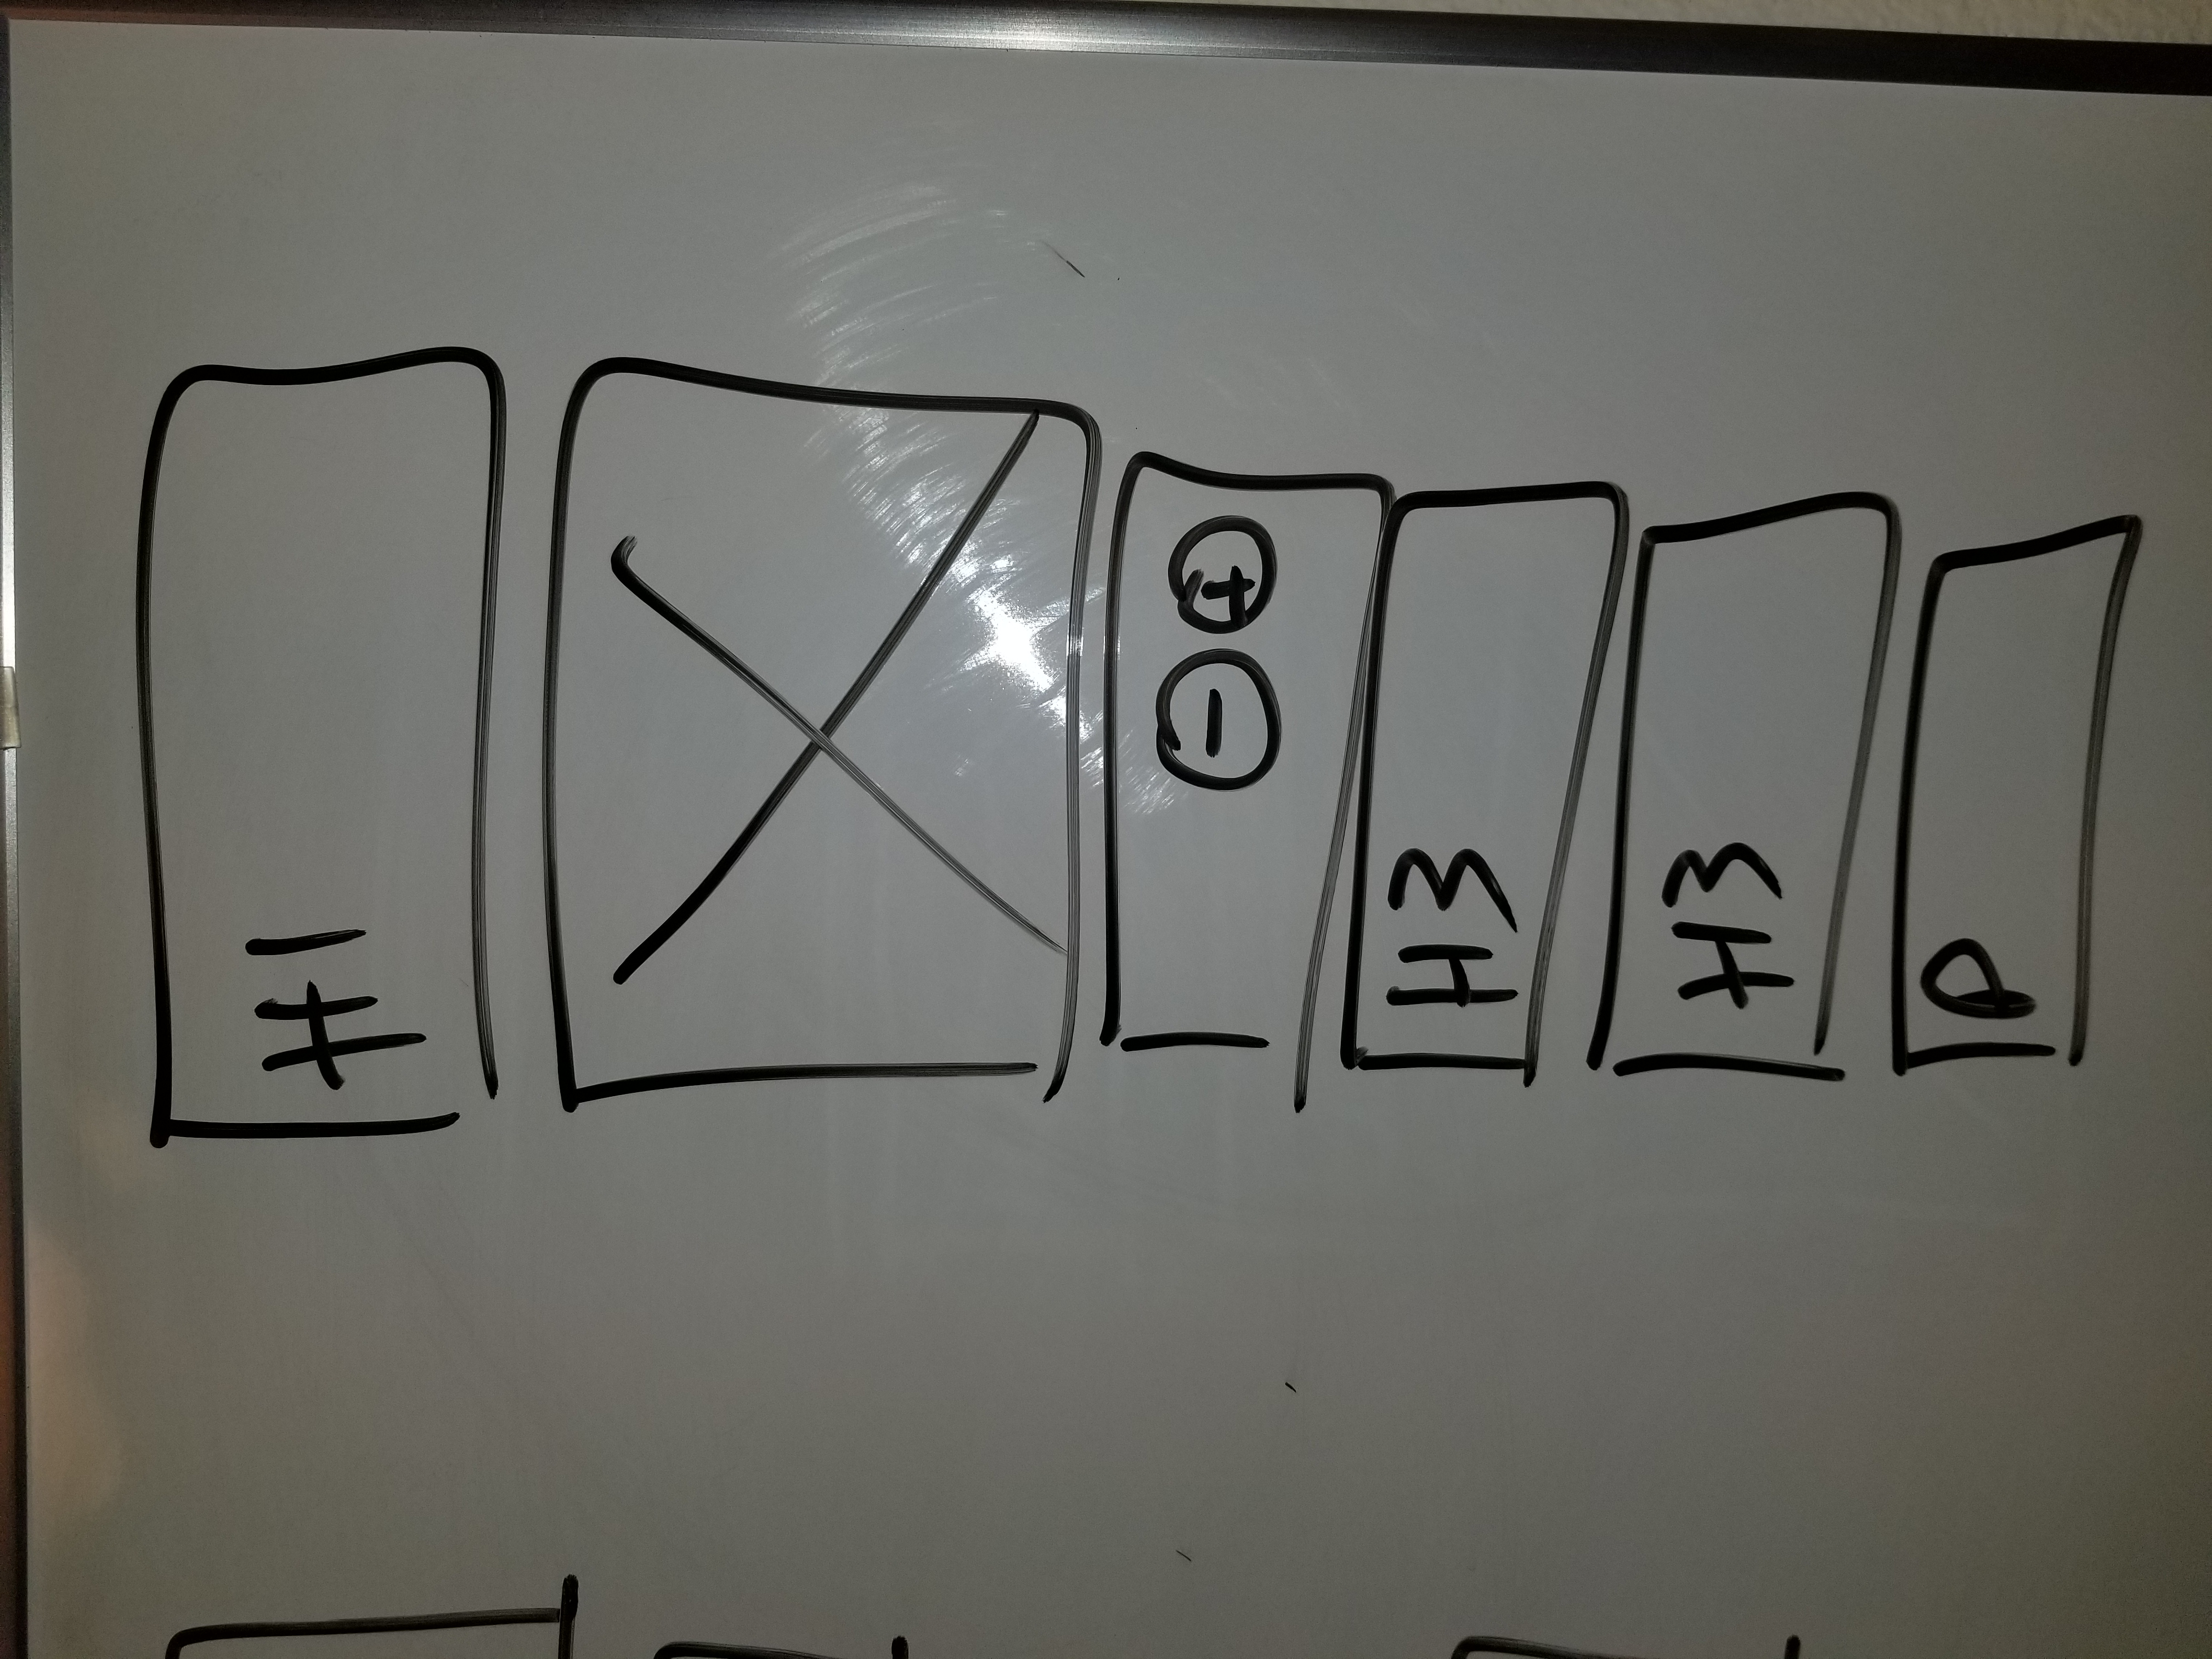 H1
- +
H3
H3
P